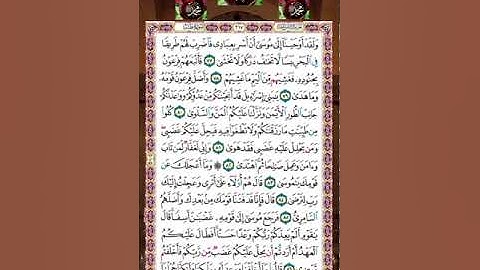 وَلَقَدْ أَوْحَيْنَا إِلَىٰ مُوسَىٰ أَنْ أَسْرِ بِعِبَادِى فَاضْرِبْ لَهُمْ طَرِيقًا
فِى الْبَحْرِ يَبَسًا لَا تَخَٰفُ دَرَكًا وَلَا تَخْشَىٰ ٧٧ فَأَتْبَعَهُمْ فِرْعَوْنُ
بِجُنُودِهِ فَغَشِيَهُمْ مِنَ الْيَمِّ مَا غَشِيَهُمْ ٧٨ وَأَضَلَّ فِرْعَوْنُ قَوْمَهُ
وَمَا هَدَىٰ ٧٩ يَٰبَنِى إِسْرَٰٓءِيلَ قَدْ أَنْجَيْنَٰكُمْ مِنْ عَدُوِّكُمْ وَوَٰعَدْنَٰكُمْ
جَانِبَ الطُّورِ الْأَيْمَنَ وَنَزَّلْنَا عَلَيْكُمُ الْمَنَّ وَالسَّلْوَىٰ ٨٠ كُلُوا
مِنْ طَيِّبَٰتِ مَا رَزَقْنَٰكُمْ وَلَا تَطْغَوْا فِيهِ فَيَحِلَّ عَلَيْكُمْ غَضَبِى
وَمَنْ يَحْلِلْ عَلَيْهِ غَضَبِى فَقَدْ هَوَىٰ ٨١ وَإِنِّى لَغَفَّارٌ لِمَنْ تَابَ
وَءَامَنَ وَعَمِلَ صَٰلِحًا ثُمَّ اهْتَدَىٰ ٨٢ ۞ وَمَا أَعْجَلَكَ عَنْ
قَوْمِكَ يَٰمُوسَىٰ ٨٣ قَالَ هُمْ أُولَاءِ عَلَىٰ أَثَرِى وَعَجِلْتُ إِلَيْكَ
رَبِّ لِتَرْضَىٰ ٨٤ قَالَ فَإِنَّا قَدْ فَتَنَّا قَوْمَكَ مِنْ بَعْدِكَ وَأَضَلَّهُمُ
السَّامِرِىُّ ٨٥ فَرَجَعَ مُوسَىٰ إِلَىٰ قَوْمِهِ غَضْبَٰنَ أَسِفًا قَالَ
يَٰقَوْمِ أَلَمْ يَعِدْكُمْ رَبُّكُمْ وَعْدًا حَسَنًا أَفَطَالَ عَلَيْكُمُ
الْعَهْدُ أَمْ أَرَدْتُمْ أَنْ يَحِلَّ عَلَيْكُمْ غَضَبٌ مِنْ رَبِّكُمْ فَأَخْلَفْتُمْ